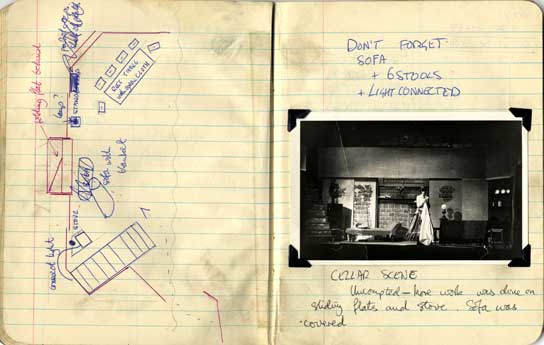 sliding flat behind
lamp?
STAND
BAR TABLE
WITH CLOTH
sofa with
blanket
STOVE
connect light
DON'T FORGET
SOFA
+ 6 STOOLS
+ LIGHT CONNECTED
CELLAR SCENE
Uncompted – more work was done on
sliding flats and stove. Sofa was
covered